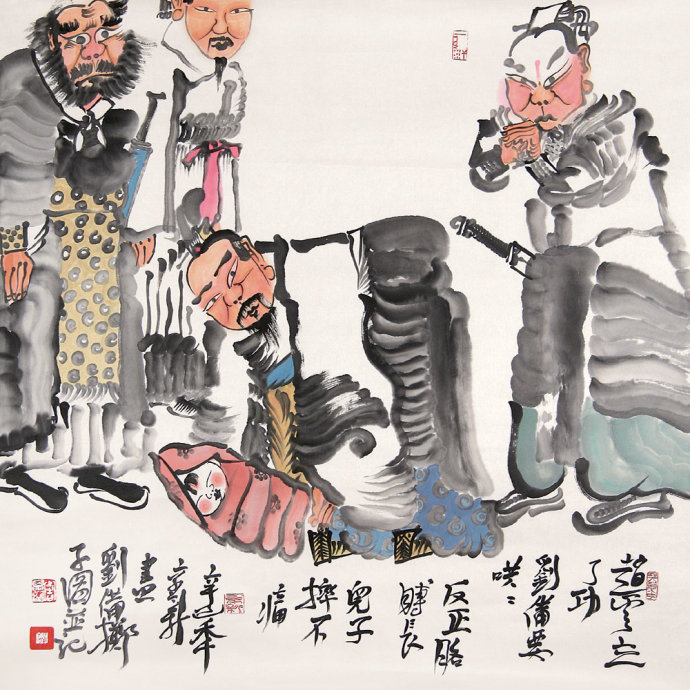 趙雲立
了功
劉備要
哄〻
反正胳
膊長
兒子
摔不
辛巳年
畫
劉備擲
子圖並記